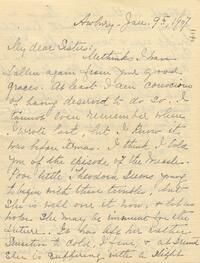 Amherst - Jan. 9th, 1897
My dear Sister:
Methinks I have
fallen again from your good
graces. At least I am conscious
of having deserved to do so. I
cannot even remember when
I wrote last, but I know it
was before Xmas. I think I told
you of the episode of the Measles.
Poor little Theodora seems young
to begin with these troubles, but
she is well over it now, & let us
hope she may be immune for the
future. It has left her rather
sensitive to cold, I fear, &
she is suffering with a slight